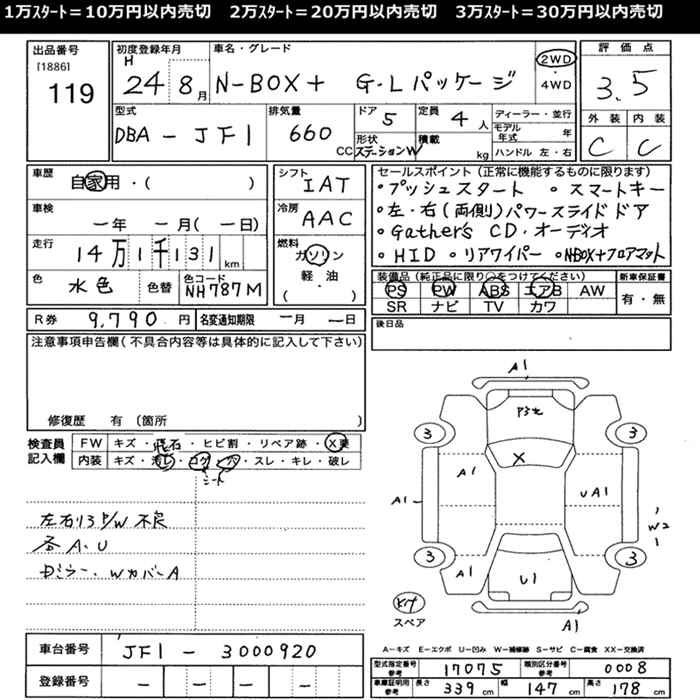 1万ｽﾀｰﾄ＝10万円以内売切　2万ｽﾀｰﾄ＝20万円以内売切　3万ｽﾀｰﾄ＝30万円以内売切
出品番号
[1886]
119
初度登録年月
H
24 8月
車名・グレード
N-BOX+ G・Lパッケージ
2WD
・
4WD
評価点
3.5
外装 内装
C C
型式
DBA - JF1
排気量
660
CC
ドア
5
形状
ステーションW
定員
4人
積載
kg
ディーラー・並行
モデル年式 年
ハンドル 左・右
車歴
自家用・( )
車検
一年 一月(一日)
走行
14万1千131km
色
水色
色替
色コード
NH787M
シフト
IAT
冷房
AAC
燃料
ガソリン
軽・油
( )
セールスポイント(正常に機能するものに限ります)
・プッシュスタート ・スマートキー
・左・右(両側)パワースライドドア
・Gather's CD・オーディオ
・HID ・リアワイパー ・N-BOX+フロアマット
装備品(純正品に限り○をつけてください)
PS PW ABS エアB AW
SR ナビ TV カワ
新車保証書
有・無
R券 9,790円
名変通知期限 一月 一日
後日品
注意事項申告欄(不具合内容等は具体的に記入して下さい)
修復歴 有 (箇所 )
検査員
記入欄
FW キズ・飛石・ヒビ割・リペア跡・X要
内装 キズ・汚レ・コゲ・穴・スレ・キレ・破レ
シート
左右リヨP/W不良
各A、U
Dミラー、WカバーA
A1
3
3
X
A1
A1
UA1
W2
3
3
A1
U1
A1
Kit
スペア
車台番号 JF1 - 3000920
登録番号 - - - -
A－キズ E－エクボ U－凹み W－補修跡 S－サビ C－腐食 XX－交換済
型式指定番号
参考
17075
類別区分番号
参考
0008
車庫証明用
参考
長さ 339cm 幅 147cm 高さ 178cm